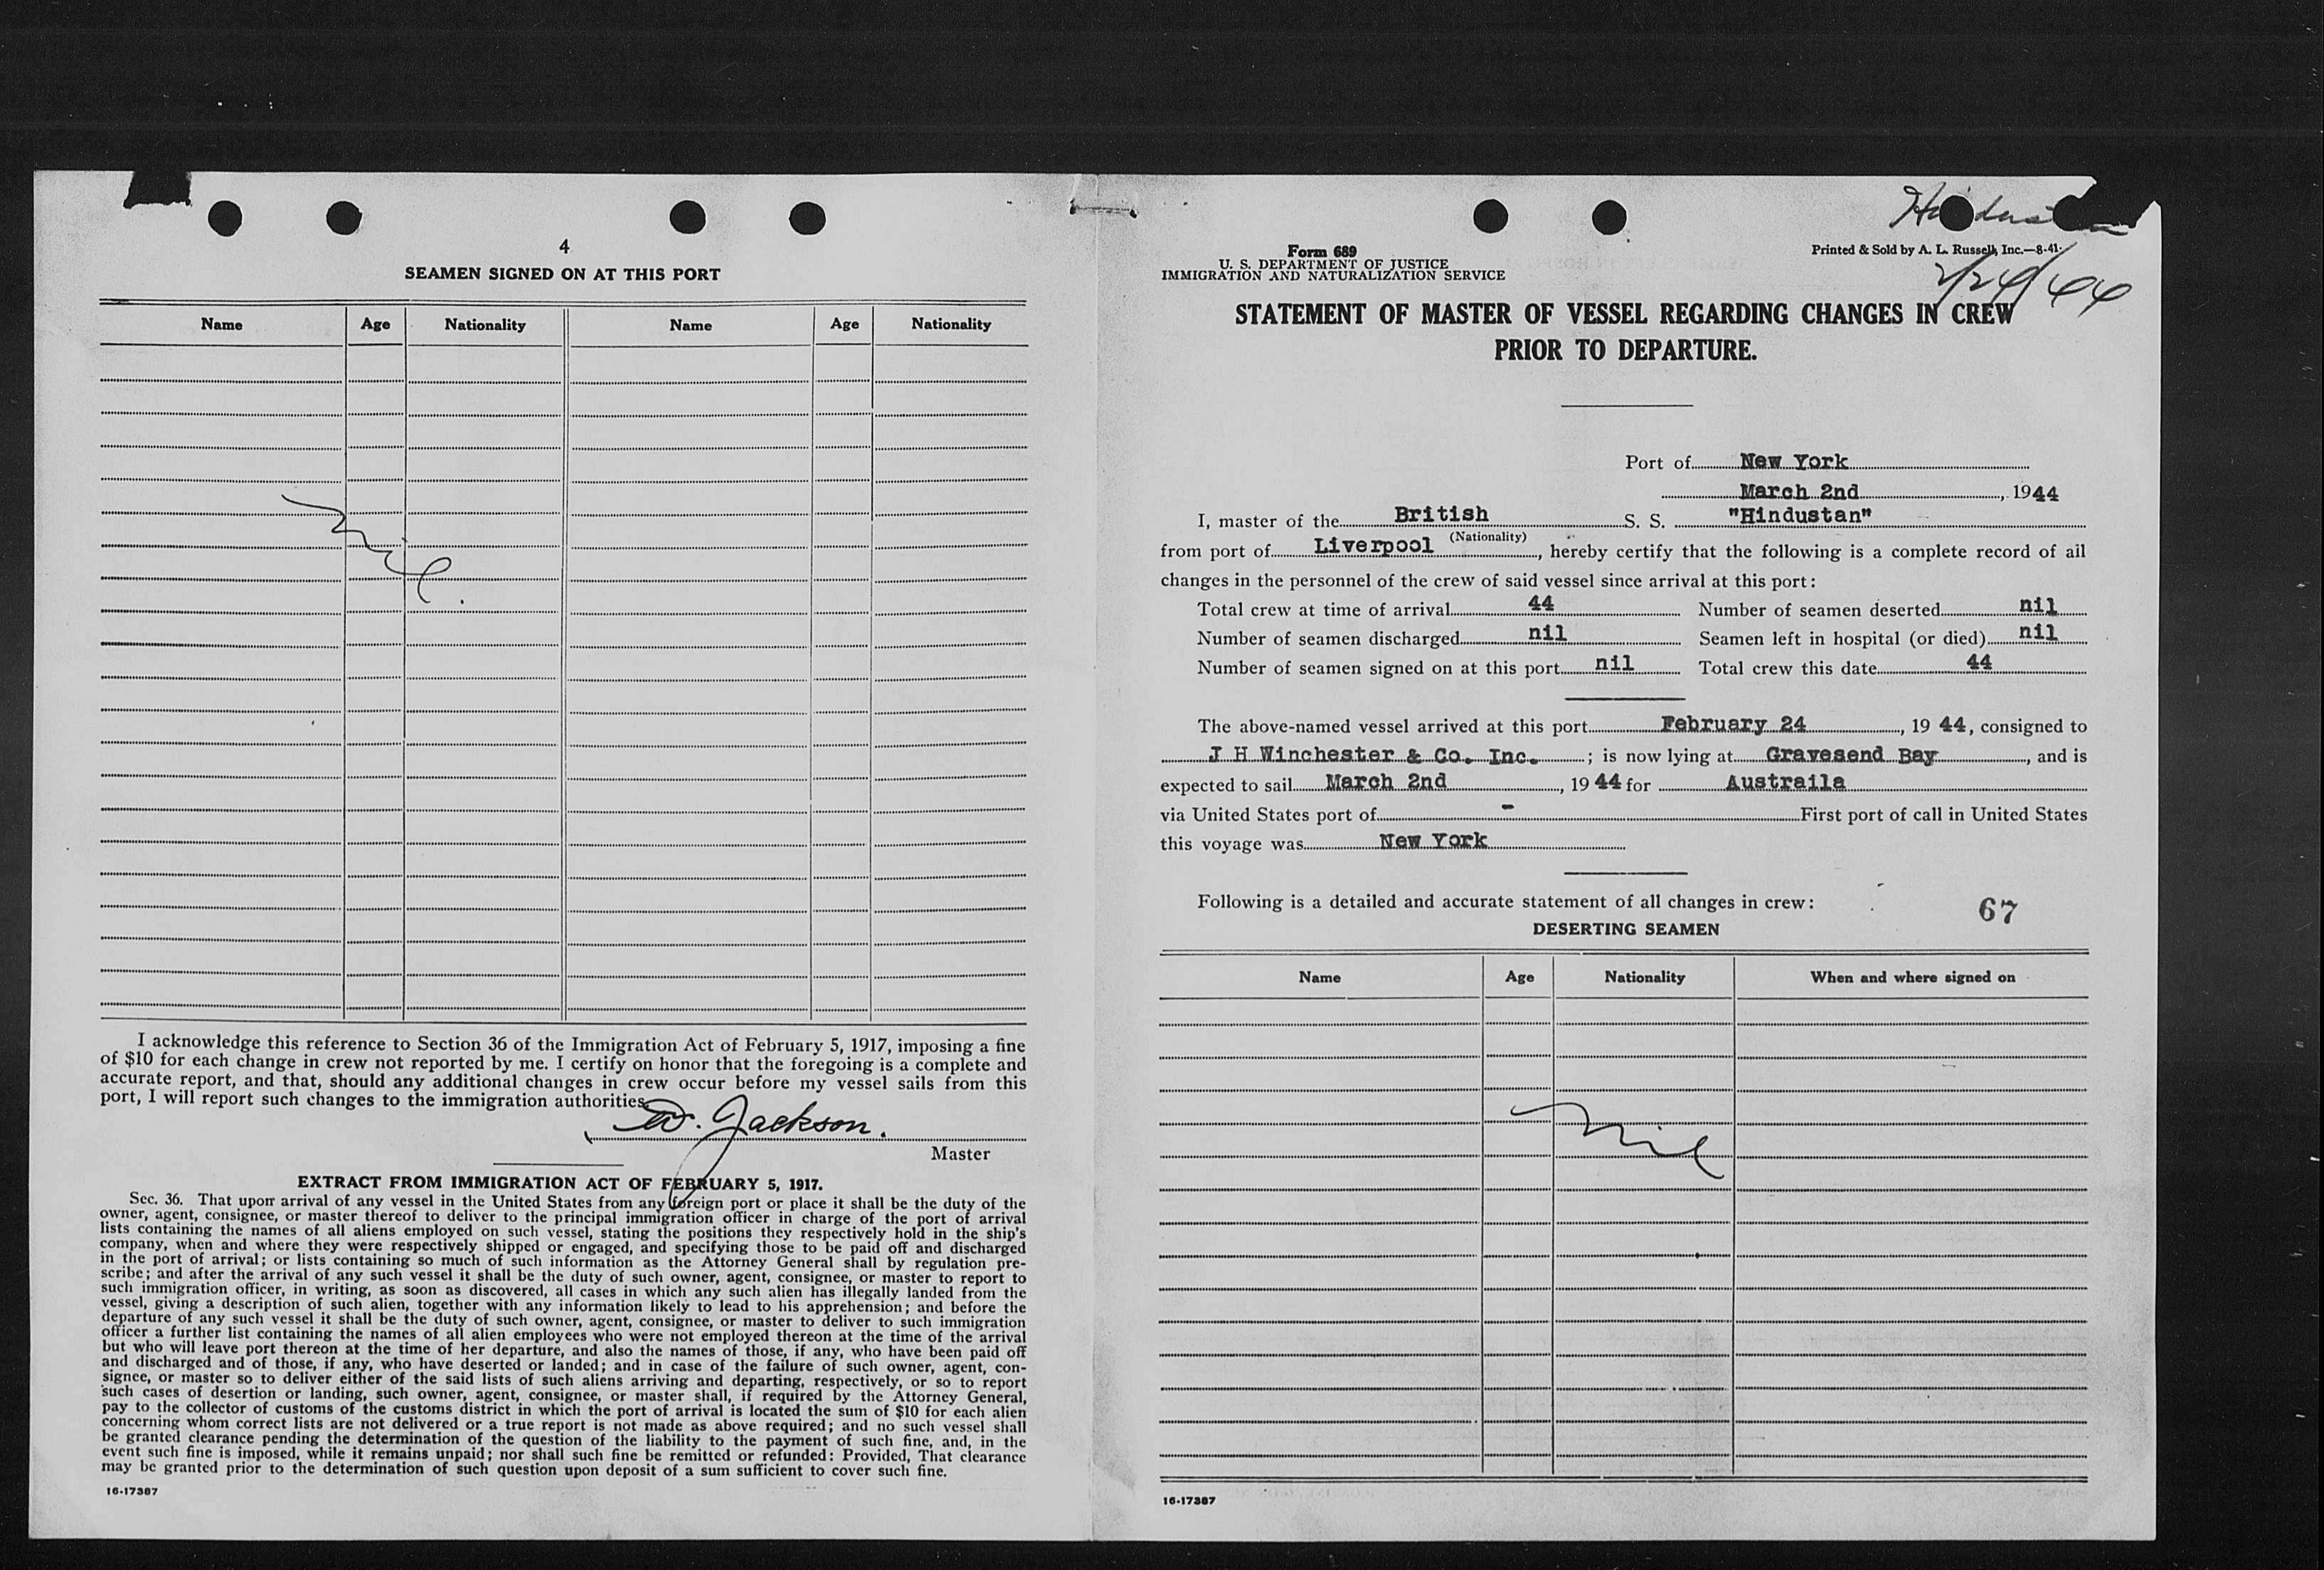 4
SEAMEN SIGNED ON AT THIS PORT
Name Age Nationality Name Age Nationality
nil.
I acknowledge this reference to Section 36 of the Immigration Act of February 5, 1917, imposing a fine
of $10 for each change in crew not reported by me. I certify on honor that the foregoing is a complete and
accurate report, and that, should any additional changes in crew occur before my vessel sails from this
port, I will report such changes to the immigration authorities.
W. Jackson.
Master
EXTRACT FROM IMMIGRATION ACT OF FEBRUARY 5, 1917.
Sec. 36. That upon arrival of any vessel in the United States from any foreign port or place it shall be the duty of the
owner, agent, consignee, or master thereof to deliver to the principal immigration officer in charge of the port of arrival
lists containing the names of all aliens employed on such vessel, stating the positions they respectively hold in the ship's
company, when and where they were respectively shipped or engaged, and specifying those to be paid off and discharged
in the port of arrival; or lists containing so much of such information as the Attorney General shall by regulation pre-
scribe; and after the arrival of any such vessel it shall be the duty of such owner, agent, consignee, or master to report to
such immigration officer, in writing, as soon as discovered, all cases in which any such alien has illegally landed from the
vessel, giving a description of such alien, together with any information likely to lead to his apprehension; and before the
departure of any such vessel it shall be the duty of such owner, agent, consignee, or master to deliver to such immigration
officer a further list containing the names of all alien employees who were not employed thereon at the time of the arrival
but who will leave port thereon at the time of her departure, and also the names of those, if any, who have been paid off
and discharged and of those, if any, who have deserted or landed; and in case of the failure of such owner, agent, con-
signee, or master so to deliver either of the said lists of such aliens arriving and departing, respectively, or so to report
such cases of desertion or landing, such owner, agent, consignee, or master shall, if required by the Attorney General,
pay to the collector of customs of the customs district in which the port of arrival is located the sum of $10 for each alien
concerning whom correct lists are not delivered or a true report is not made as above required; and no such vessel shall
be granted clearance pending the determination of the question of the liability to the payment of such fine, and, in the
event such fine is imposed, while it remains unpaid; nor shall such fine be remitted or refunded: Provided, That clearance
may be granted prior to the determination of such question upon deposit of a sum sufficient to cover such fine.
16-17387
Form 689
U. S. DEPARTMENT OF JUSTICE
IMMIGRATION AND NATURALIZATION SERVICE
Printed & Sold by A. L. Russell, Inc.—8-41
2/24/44
STATEMENT OF MASTER OF VESSEL REGARDING CHANGES IN CREW
PRIOR TO DEPARTURE.
Port of New York
March 2nd, 1944
I, master of the British S. S. "Hindustan"
(Nationality)
from port of Liverpool, hereby certify that the following is a complete record of all
changes in the personnel of the crew of said vessel since arrival at this port:
Total crew at time of arrival 44 Number of seamen deserted nil
Number of seamen discharged nil Seamen left in hospital (or died) nil
Number of seamen signed on at this port nil Total crew this date 44
The above-named vessel arrived at this port February 24, 19 44, consigned to
J H Winchester & Co. Inc. ; is now lying at Gravesend Bay, and is
expected to sail March 2nd, 19 44 for Austraila
via United States port of - First port of call in United States
this voyage was New York
Following is a detailed and accurate statement of all changes in crew:
67
DESERTING SEAMEN
Name Age Nationality When and where signed on
nil
16-17387